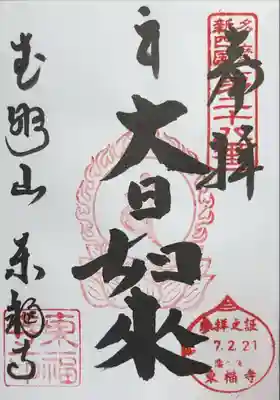 奉拝
多摩
新四国
十八番
大日如来
山 東福寺
東福
参拝之証
7.2.21
東福寺